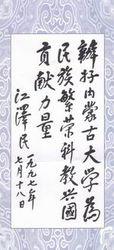 办好内蒙古大学为
民族繁荣科教兴国
贡献力量
江泽民
一九九七年
七月十八日